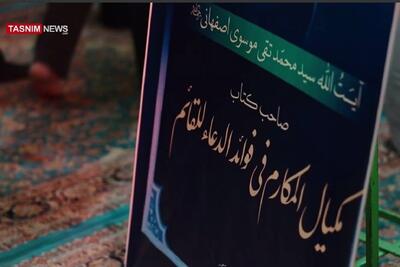 TASNIM NEWS
آیت الله سید محمد تقی موسوی اصفهانی
صاحب کتاب
مکیال المکارم فی فوائد الدعاء للقائم